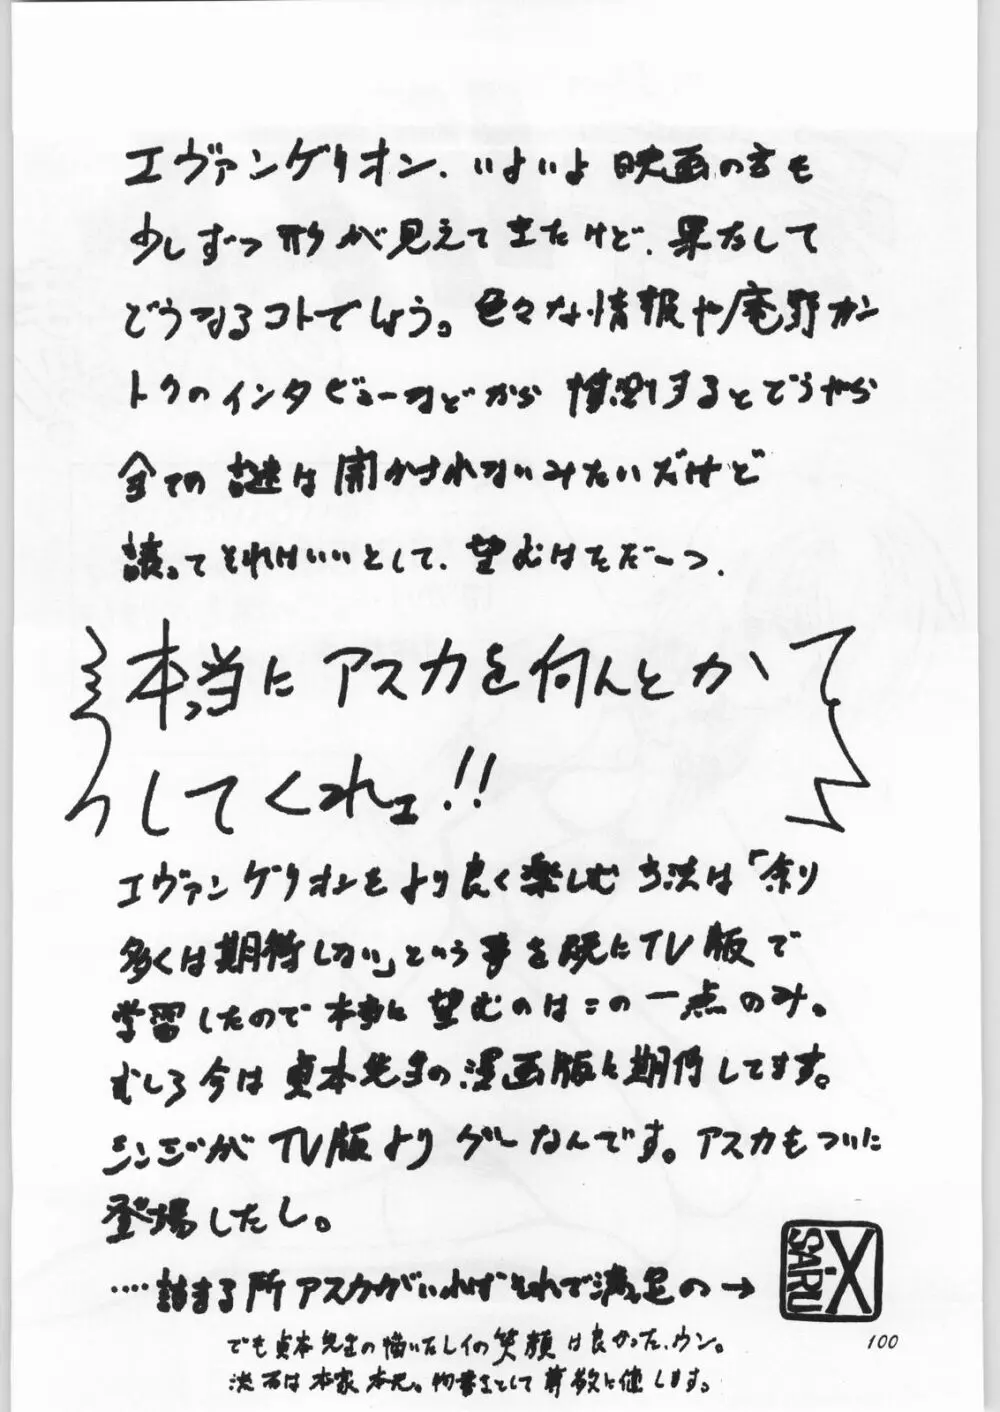 エヴァンゲリオン、いよいよ映画の方も
少しずつ形が見えてきたけど、果たして
どうなるコトでしょう。色々な情報や庵野カン
トクのインタビューなどから推測するとどうやら
全ての謎は開かされないみたいだけど
譲ってそれはいいとして、望むはそだーつ、
本っ当にアスカを何んとか
してくれェ!!
エヴァンゲリオンをより良く楽しむ方法は「余り
多くは期待しない」という事を既にTV版で
学習したので本当に望むのはこの一点のみ。
むしろ今は貞本先生の漫画版に期待してます。
シンジがTV版よりグーなんです。アスカもついに
登場したし。
‥‥詰まる所アスカがいればそれで満足の→
X・SARU
でも貞本先生の描いたレイの笑顔は良かった、ウン。
流石は本家本元。物書きとして尊敬に値します。
100